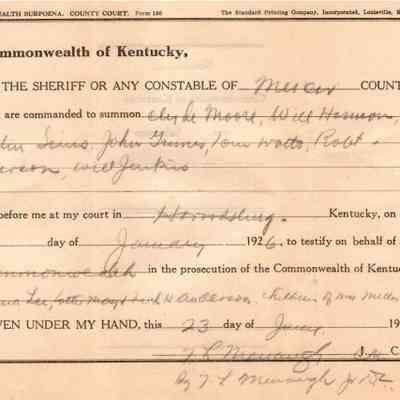 EALTH SUBPOENA. COUNTY COURT. Form 186 The Standard Printing Company, Incorporated, Louisville,
ommonwealth of Kentucky,
THE SHERIFF OR ANY CONSTABLE OF Mercer COUNT
are commanded to summon Clyde Moore, Will Harrison,
Sims, John Grimes, Tom Watts, Robt
erson, Will Jenkins
before me at my court in Harrodsburg. Kentucky, on
day of January 1926, to testify on behalf of
ommonwealth in the prosecution of the Commonwealth of Kentuc
Lee, Anderson, children of Mrs
VEN UNDER MY HAND, this 23 day of Jany. 19
T L Menaugh J. C
By T L Menaugh Jr